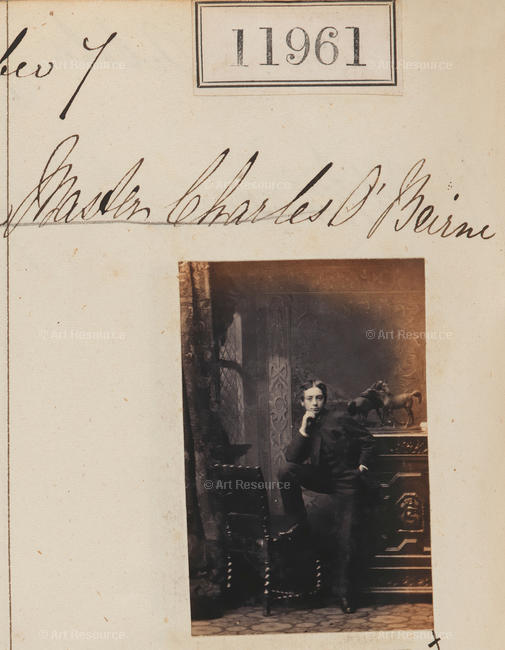 11961
ber 7
Master Charles O'Beirne
Art Resource
Art Resource
Art Resource
Art Resource
Art Resource
Art Resource
Art Resource
Art Resource
Art Resource